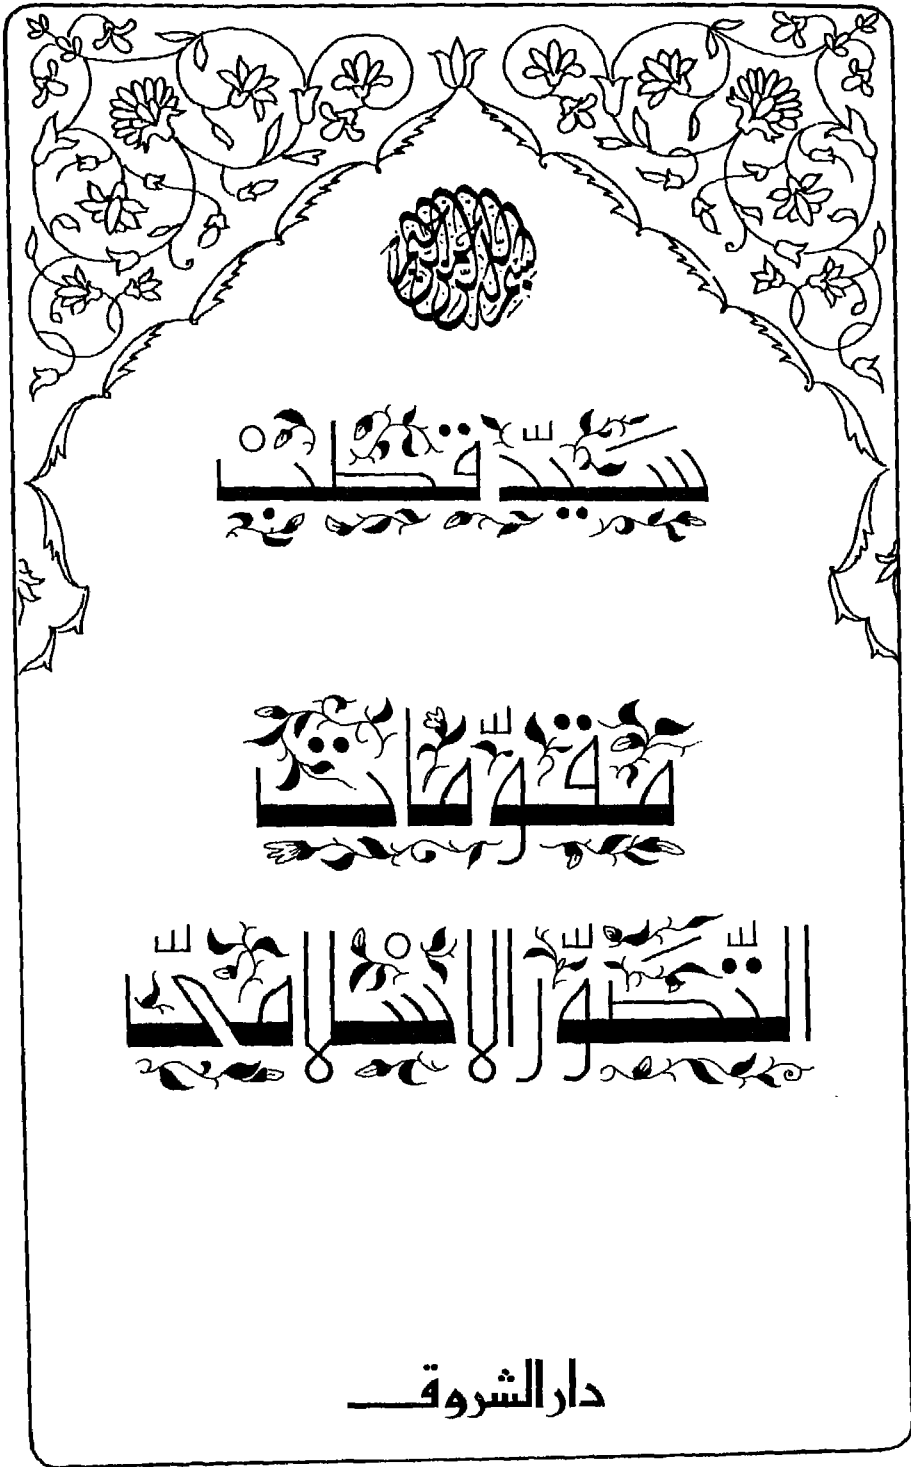 بسم الله الرحمن الرحيم
سَيّد قطبْ
مقوّمات
التَّصَوّر الاسْلامىّ
دار الشروق